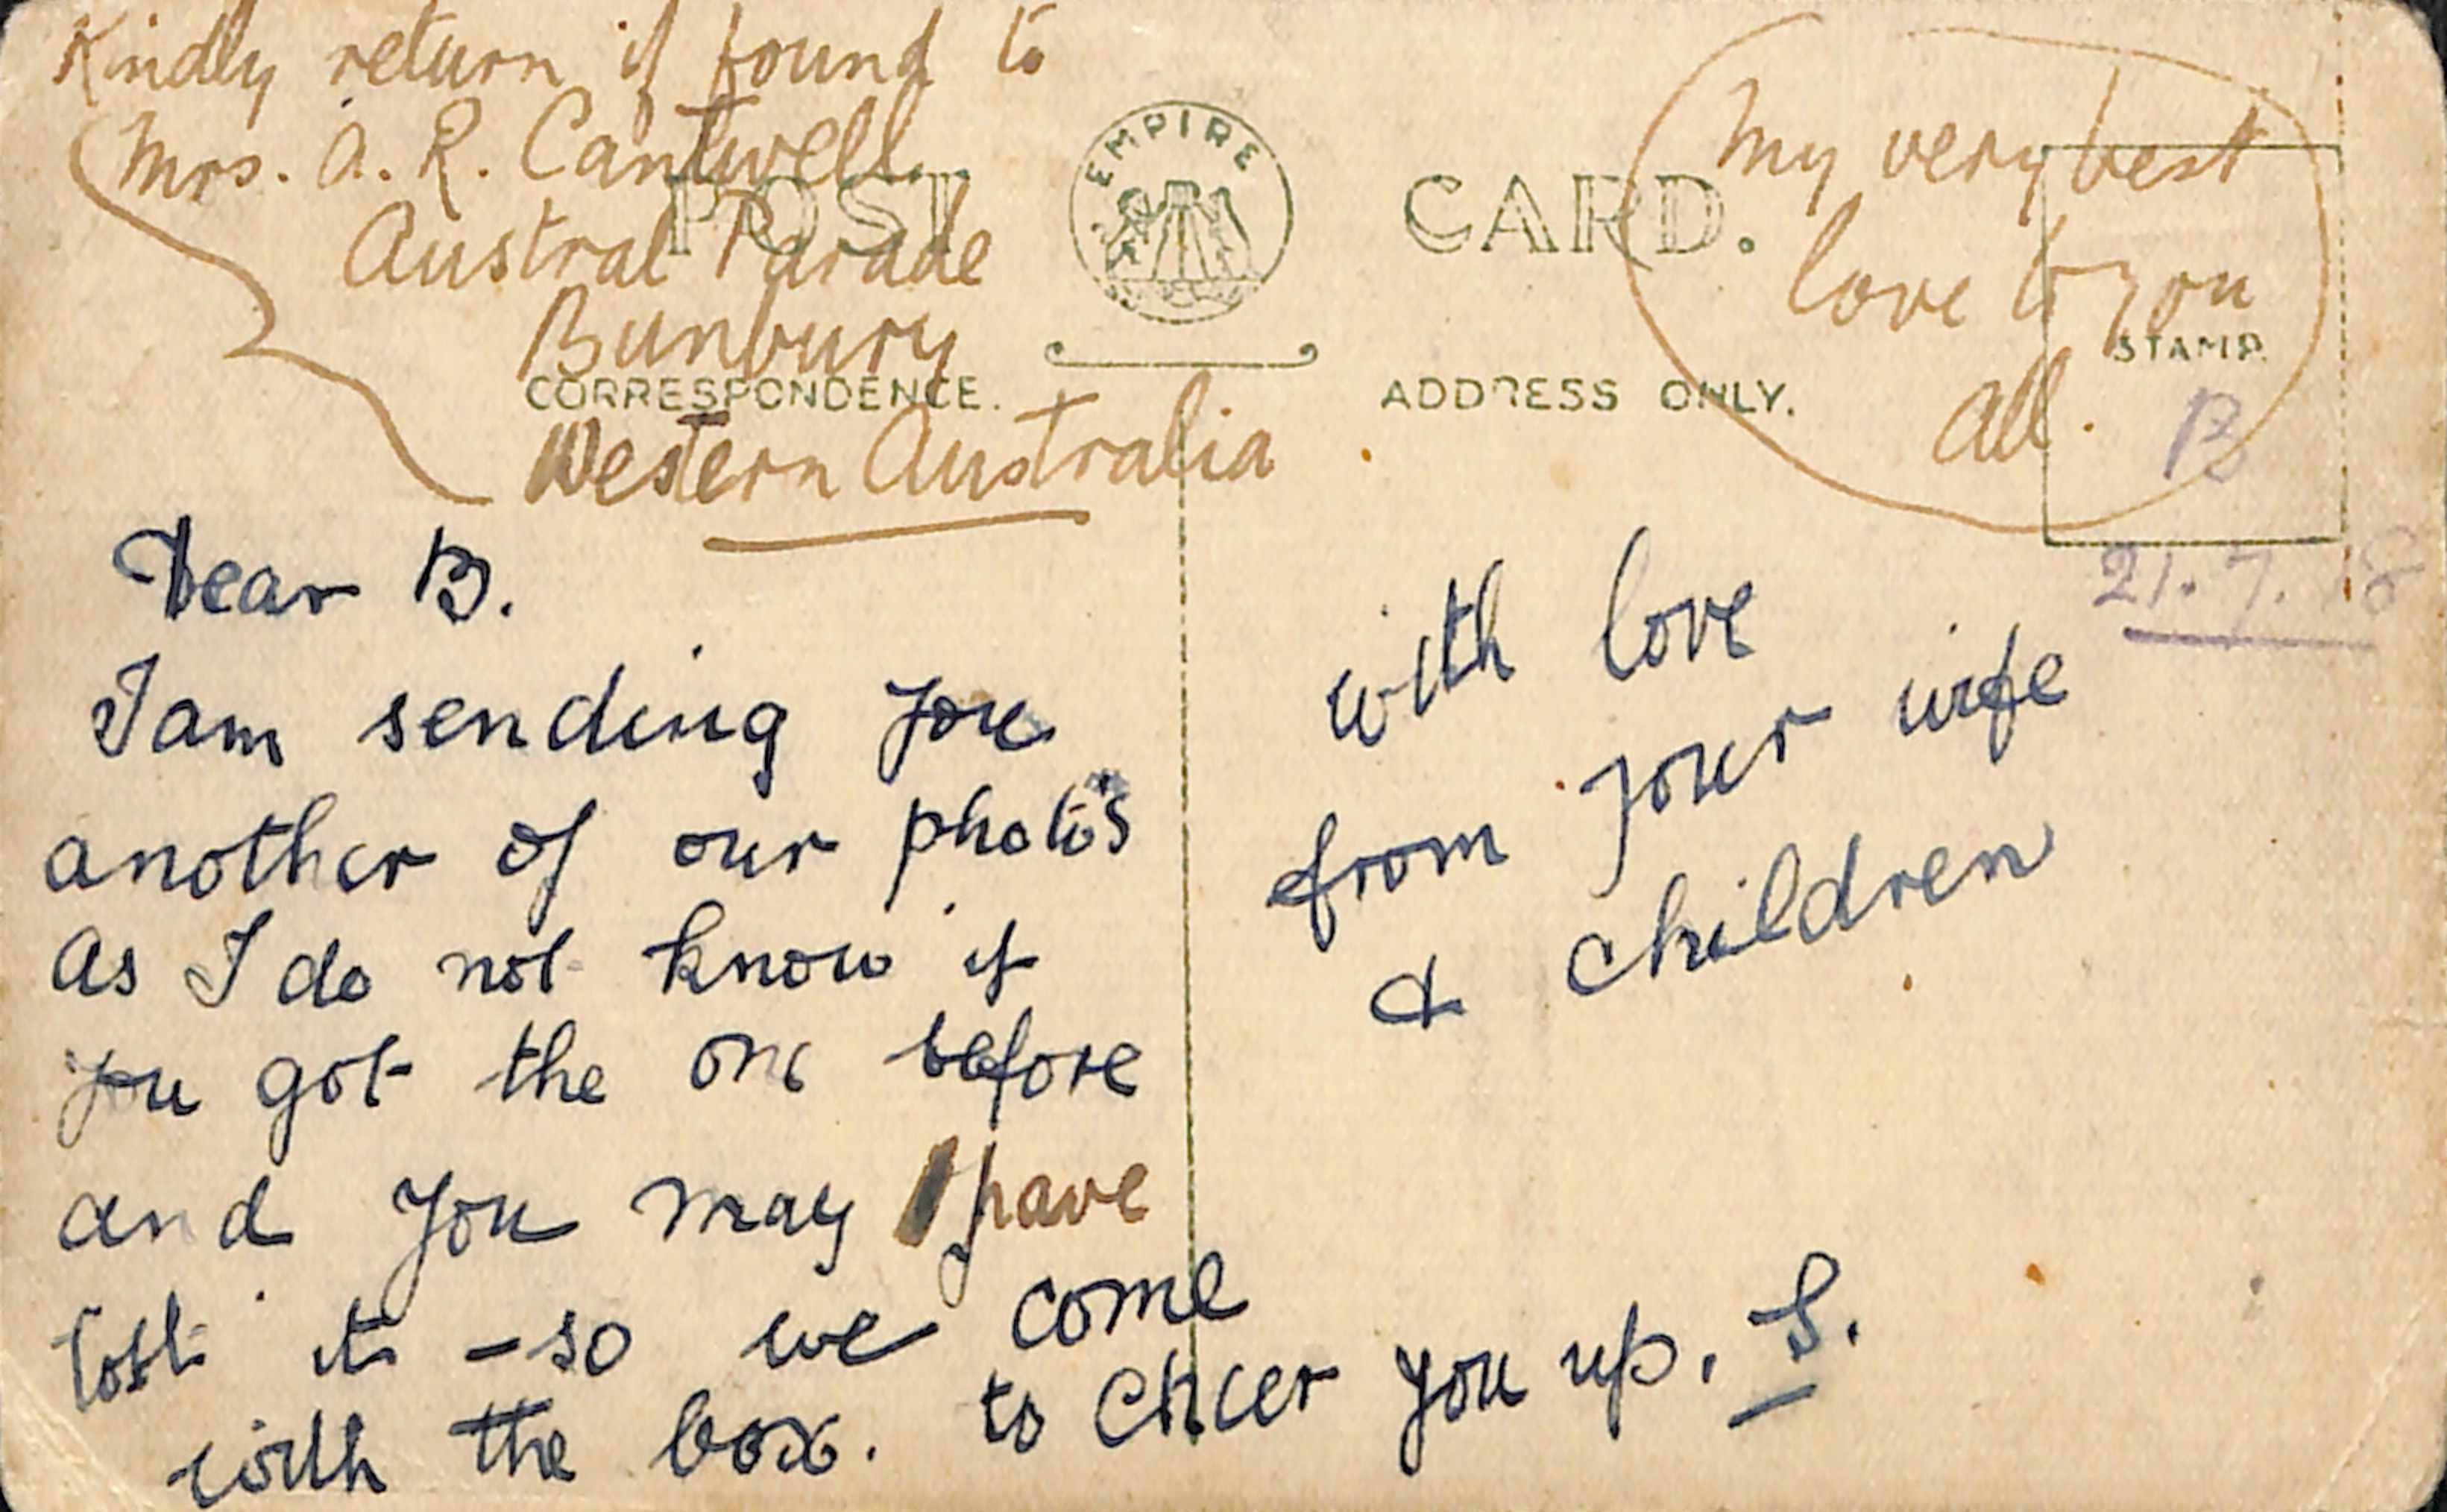 Kindly return if found to
Mrs. A. R. Cantwell
Austral Parade
Bunbury
Western Australia
POST CARD.
EMPIRE
CORRESPONDENCE.
ADDRESS ONLY.
STAMP.
My very best
love to you
all.
B
21.7.18
Dear B.
I am sending you
another of our photo's
As I do not know if
you got the one before
and you may have
lost it - so we come
with the box. to cheer you up. S.
with love
from your wife
& children